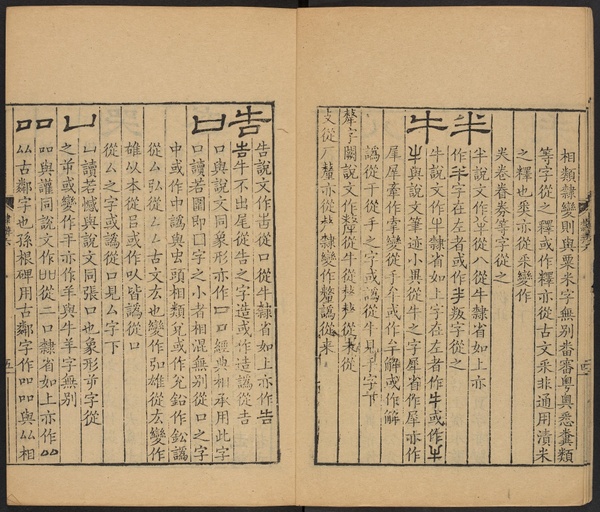 相類隸變則與栗米字無別番審粵奥悉糞類
等字從之釋或作釋亦從古文釆非通用漬米
之釋也奚亦從釆變作
类卷眷券等字從之
半
半說文作半從八從牛隸省如上亦
作半字在左者或作叛字從之
牛
牛說文作牛隸省如上字在左者作牛或作
牛與說文筆迹小異從牛之字犀省作犀亦作
犀犀牽作牽變從手牟或作牟解或作解
譌從干從手之字或譌從牛見手字下
犛字闕說文作犛從牛從
從厂亦從隸變作犛譌從來
告
告說文作告從口從牛隸省如上亦作告
告牛不出尾從告之字造或作造譌從吉
口
口與說文同象形亦作口口經典相承用此字
口讀若圍即囗字之小者相混無別從口之字
中或作中譌與虫頭相類兌或作兊鉛作鈆譌
從厶弘從厶厶古文厷也變作弘雄從厷變作
雄以本從呂或作㕥皆譌從口
從厶之字或譌從口見厶字下
凵
凵讀若憾與說文同張口也象形芇字從
之芇或變作芇亦作羊與牛羊字無別
吅
吅與讙同說文作吅從二口隸省如上亦作吅
厸古鄰字也孫根碑用古鄰字作吅吅與厸相
五